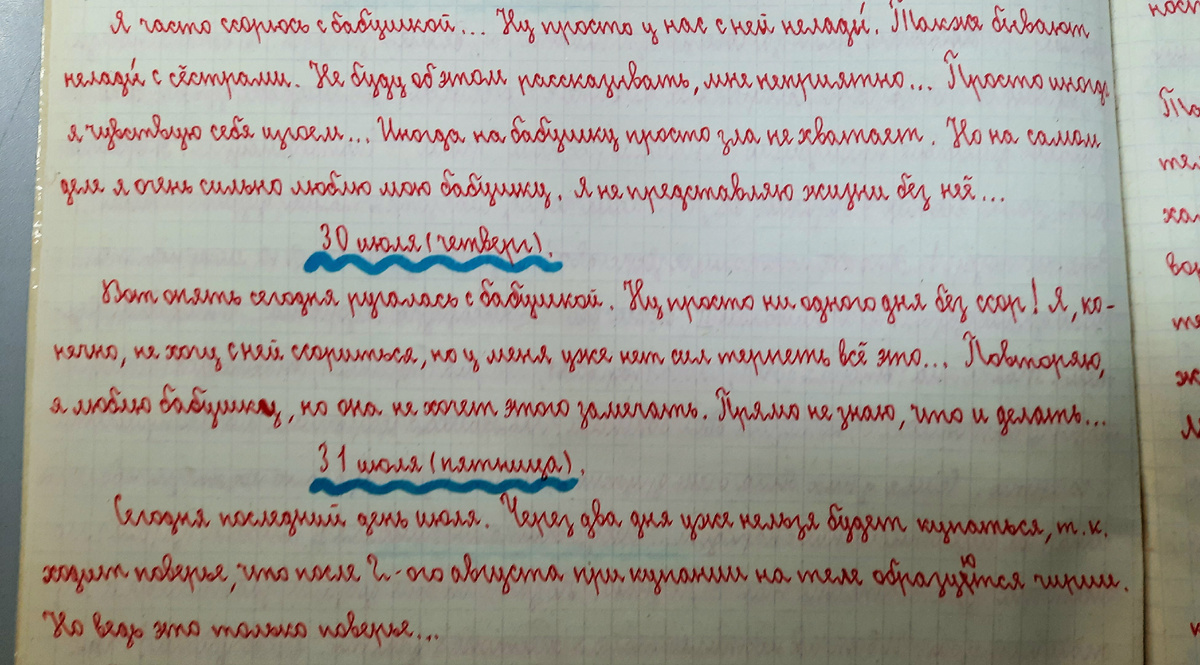 Я часто ссорюсь с бабушкой... Ну просто у нас с ней нелады́. Также бывают
нелады́ с сёстрами. Не буду об этом рассказывать, мне неприятно... Просто иногда
я чувствую себя изгоем... Иногда на бабушку просто зла не хватает. Но на самом
деле я очень сильно люблю мою бабушку. Я не представляю жизни без неё...
30 июля (четверг).
Вот опять сегодня ругалась с бабушкой. Ну просто ни одного дня без ссор! Я, ко-
нечно, не хочу с ней ссориться, но у меня уже нет сил терпеть всё это... Повторяю,
я люблю бабушку, но она не хочет этого замечать. Прямо не знаю, что и делать...
31 июля (пятница).
Сегодня последний день июля. Через два дня уже нельзя будет купаться, т.к.
ходит поверье, что после 2-ого августа при купании на теле образуются чирии.
Но ведь это только поверье...